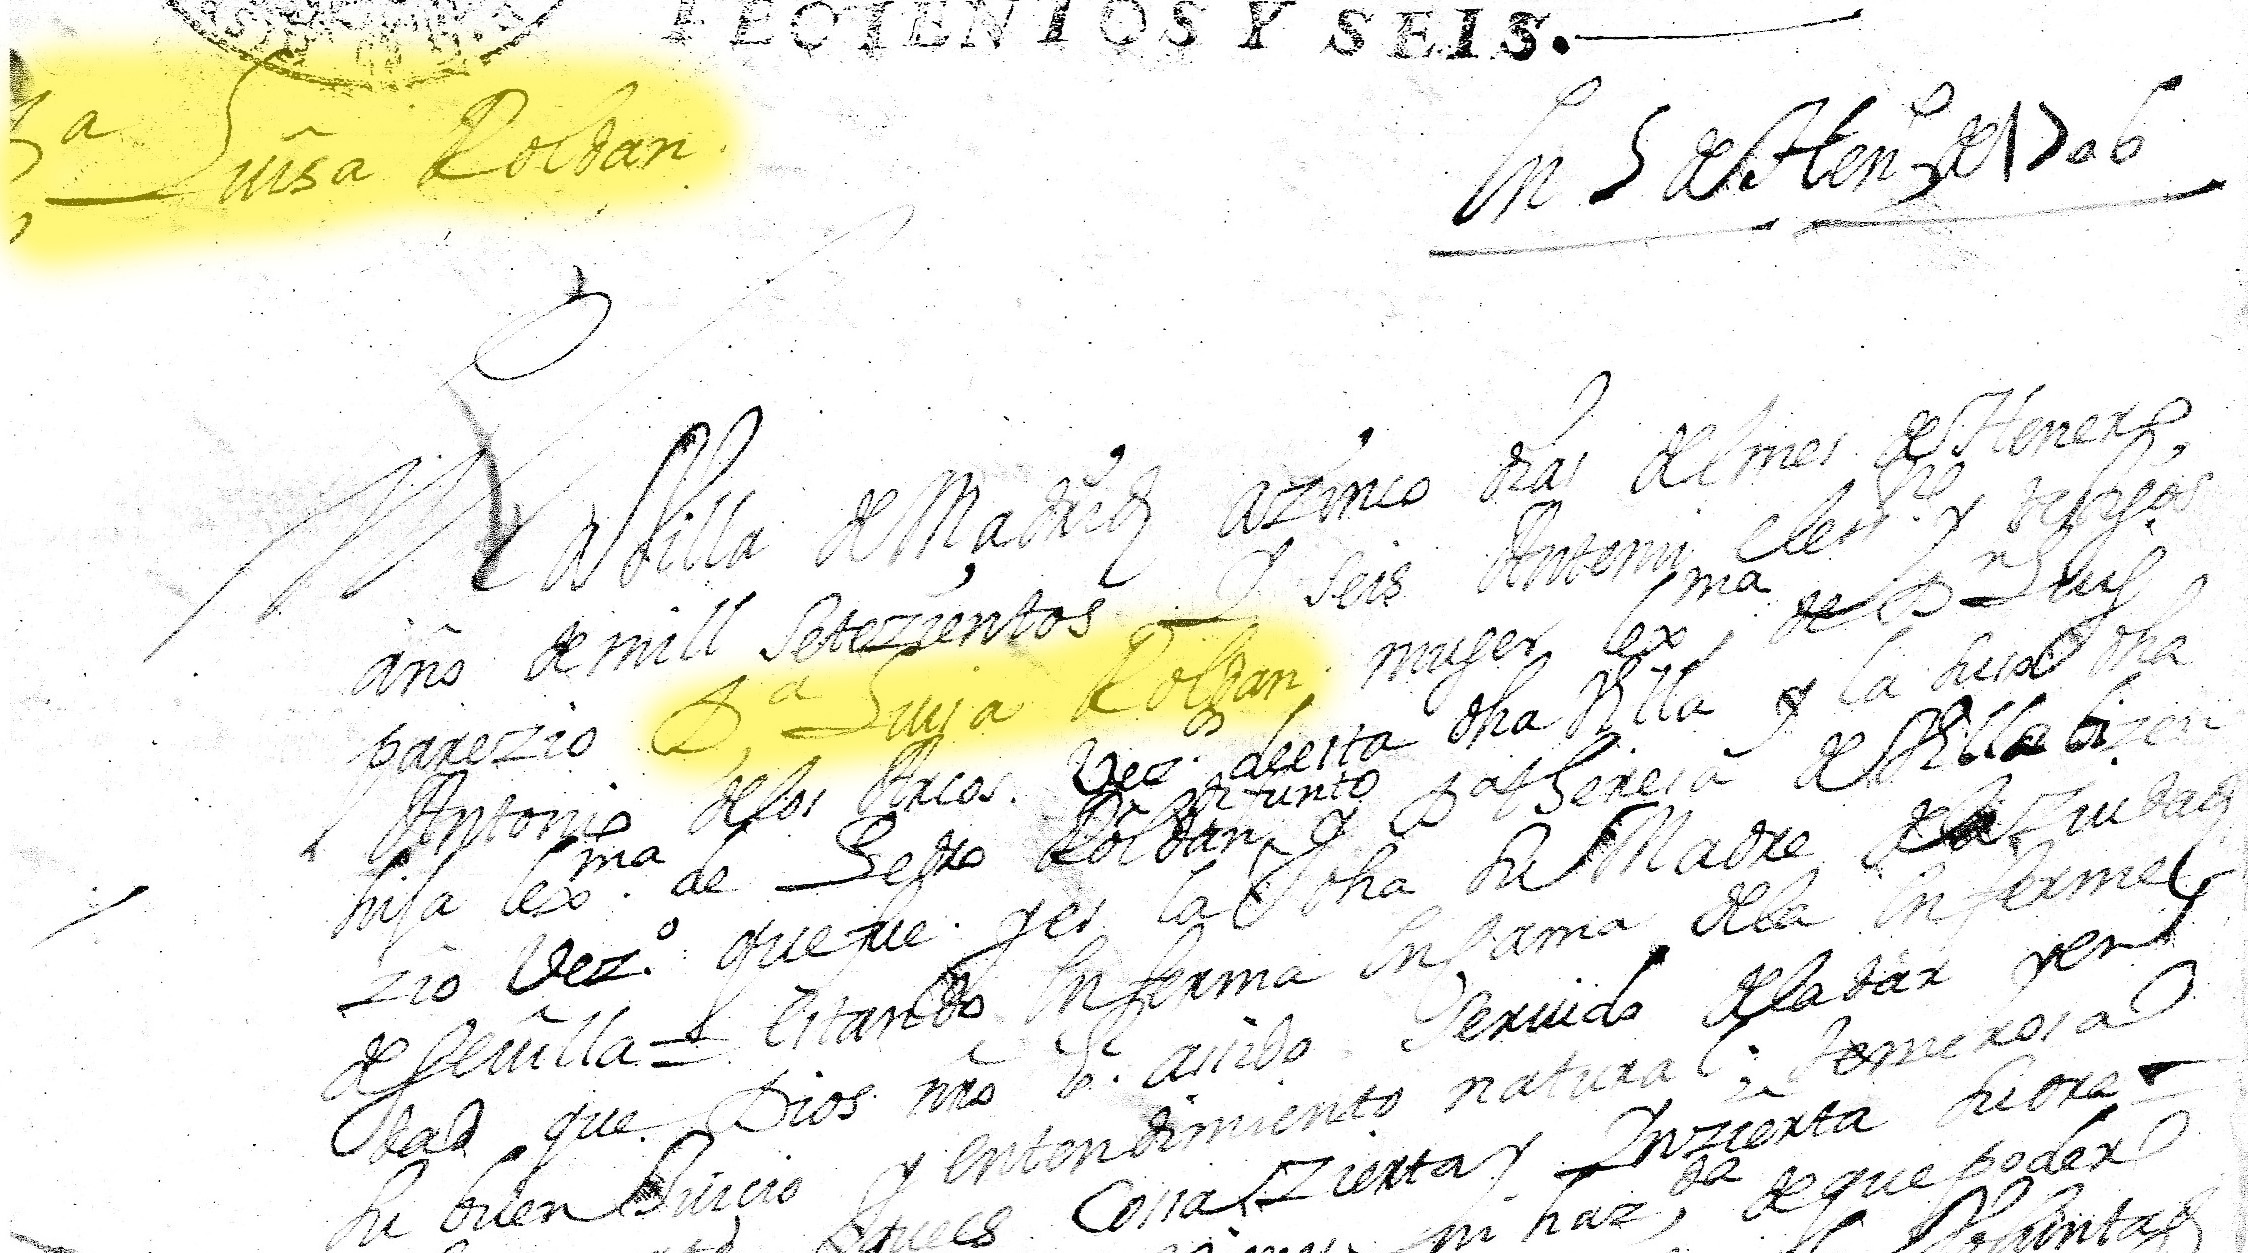 TECIENTOS Y SEIS.
D.ª Luisa Roldan.
En 5 de Hen.º de 1706
En la Villa de Madrid a zinco dias del mes de Henero,
año de mill setezientos y seis Ante mi el ess.no y testigos
parezio D.ª Luisa Roldan muger lex.ma de D.n Luis
Antonio de los Arcos. vez.os de esta dha Villa y la suso dha
hija lex.ma de Pedro Roldan difunto y D.ª Theresa de Villabizen
zio Vez.º que fue y es la dha su Madre de la Ziudad
de Seuilla = estando enferma en cama de la enferme
dad que Dios nro S.r a sido seruido de la dar pero en
su buen Juicio y entendimiento natural; temerosa
pues cossa zierta y Inzierta su ora
haz.da de que poder